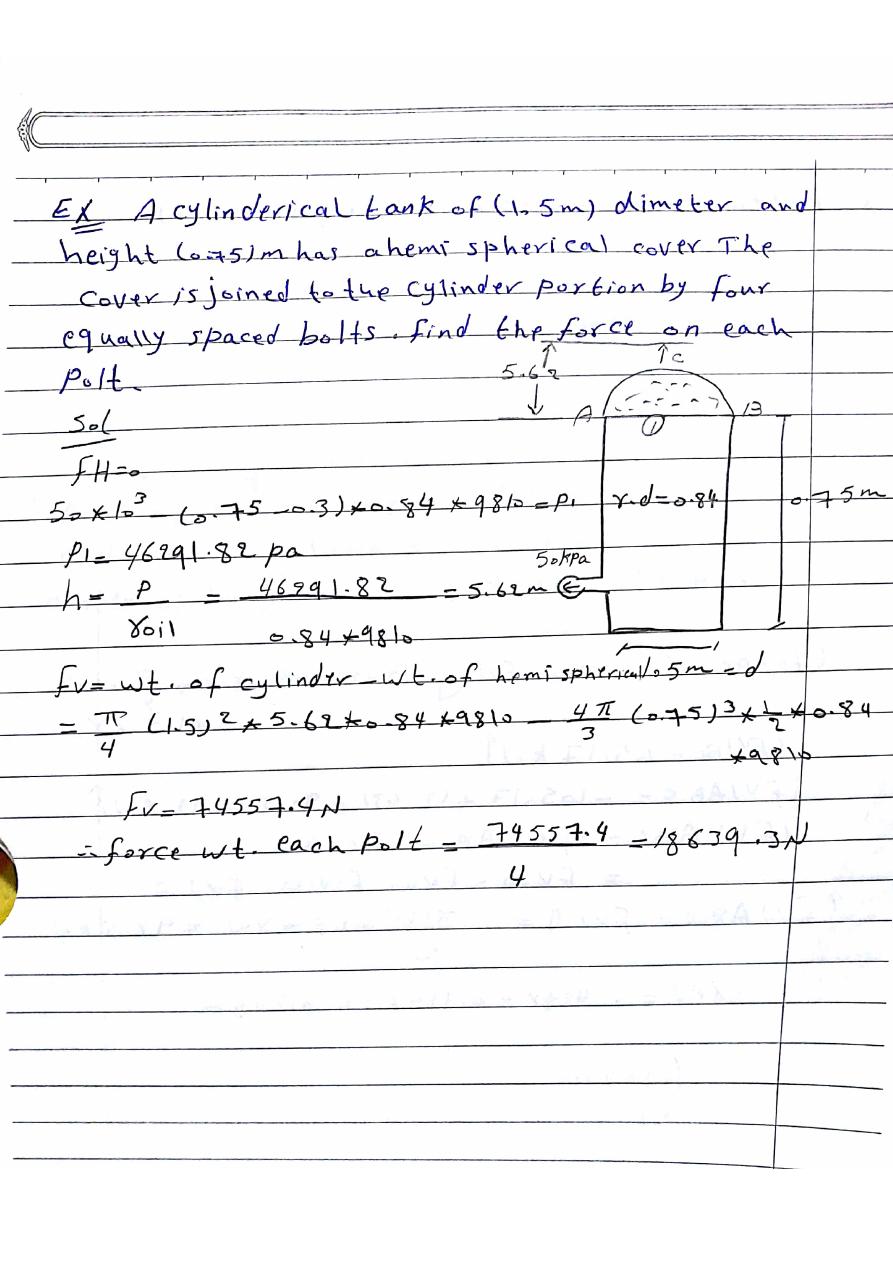 EX A cylinderical tank of (1.5m) dimeter and
height (0.75)m has ahemi spherical cover The
cover is joined to tue cylinder portion by four
equally spaced bolts. find the force on each
Polt.
5.62
↑C
A
B
①
Sol
FH=0
50*10³-(0.75-0.3)*0.84*9810=P1
r.d=0.84
0.75m
P1=46291.82 pa
50kPa
h= P/γoil = 46291.82/0.84*9810 = 5.62m
Fv= wt. of cylinder-wt. of hemi spherical
1.5m=d
= π/4 (1.5)²*5.62*0.84*9810 - 4π/3 (0.75)³*1/2*0.84
*9810
Fv= 74557.4N
∴ force wt. each Polt = 74557.4/4 = 18639.3N